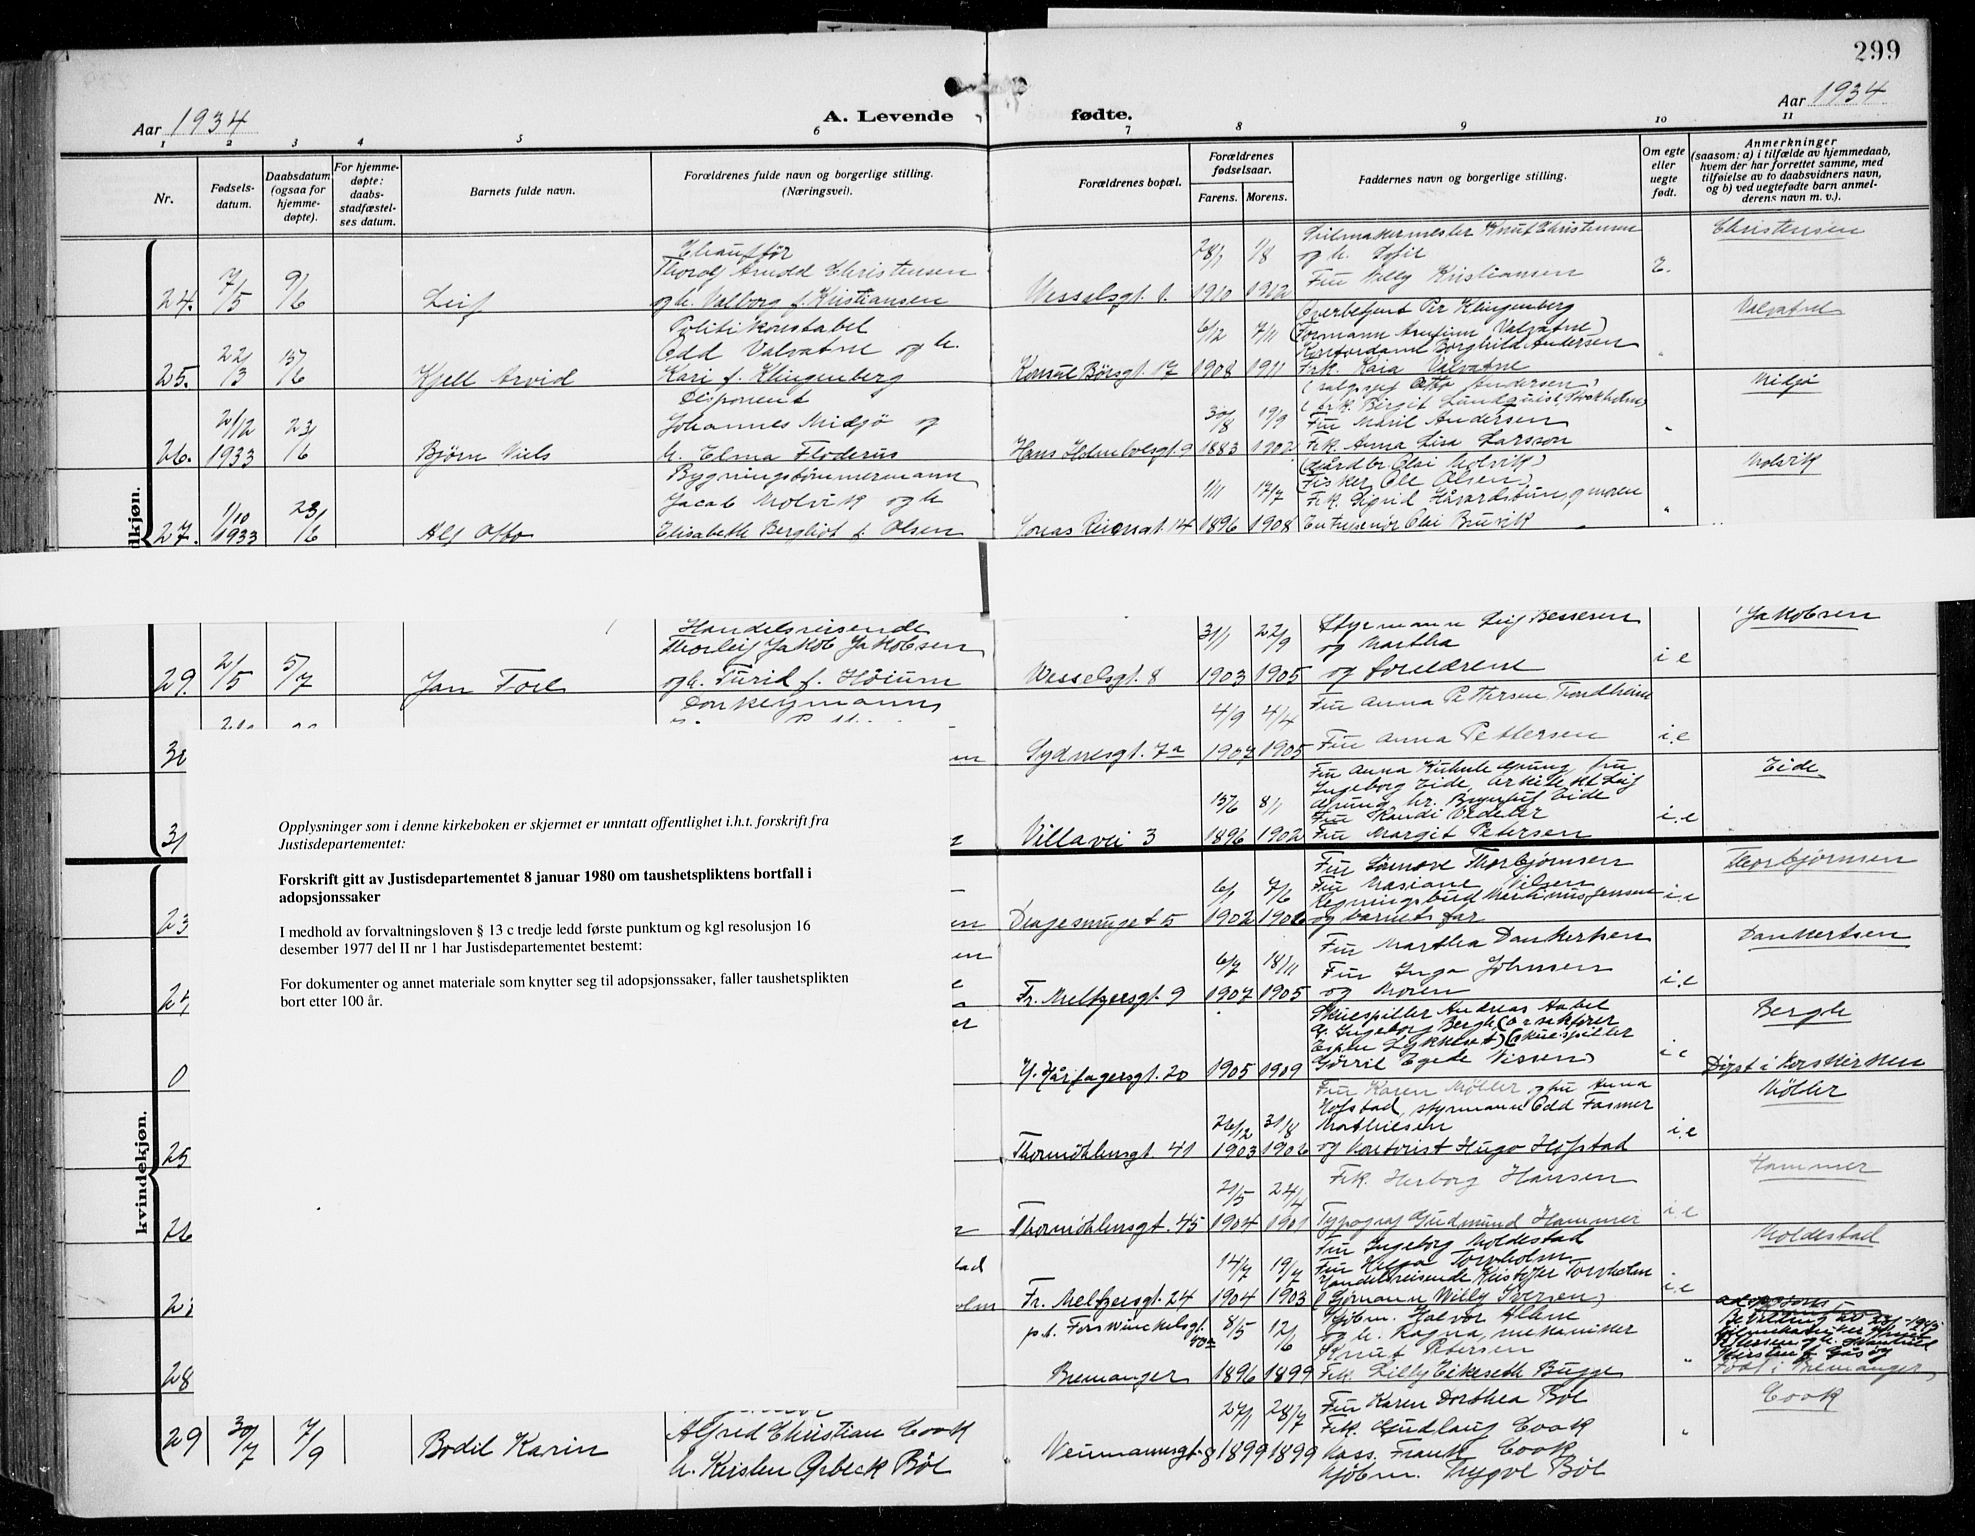 299
Aar 1934
A. Levende fødte.
Aar 1934
1 2 3 4 5 6 7 8 9 10 11
Nr.
Fødsels-
datum.
Daabsdatum
(ogsaa for
hjemme-
døpte).
For hjemme-
døpte:
daabs-
stadfæstel-
ses datum.
Barnets fulde navn.
Forældrenes fulde navn og borgerlige stilling.
(Næringsvei).
Forældrenes bopæl.
Forældrenes
fødselsaar.
Farens. Morens.
Faddernes navn og borgerlige stilling.
Om egte
eller
uegte
født.
Anmerkninger
(saasom: a) i tilfælde av hjemmedaab,
hvem der har forrettet samme, med
tilføielse av to daabsvidners navn,
og b) ved uegtefødte barn anmel-
derens navn m. v.).
24. 7/5 9/6 Leif
Chauffør
Thorolf Arnold Christensen
og h. Valborg f. Kristiansen
Wesselsgt. 1. 28/1 1910 1/8 1912
Seilmakermester Knut Christensen
og h. Sofie
Fru Milly Kristiansen
E.
Christensen
25. 22/3 15/6 Kjell Arvid
Politikonstabel
Odd Valvatne og h.
Kari f. Klingenberg
Konsul Børsgt. 17 6/2 1908 7/11 1911
Overbetjent Per Klingenberg
(Formann Arnfinn Valvatne)
Kontordame Borghild Andersen
Frk. Kaia Valvatne
Valvatne
26. 21/12 1933 23/6 Bjørn Niels
Disponent
Johannes Midjø og
h. Elma Floderus
Hans Holmboesgt. 9 30/8 1883 19/9 1902
(salgssjef Otto Andersen)
(frk. Birgit Lundquist, Stockholm)
Fru Maril Andersen
Frk. Anna Lisa Larsson
Midjø
27. 1/10 1933 23/6 Alf Otto
Bygningstømmermann
Jacob Molvik og h
Elisabeth Bergliot f. Olsen
Jonas Reinsgt. 14 1/11 1896 17/7 1908
(Gårdbr. Olai Molvik)
(Fisker Ole Olsen)
Frk. Sigrid Håvardstun, og moren
Entreprenør Olai Bruvik
Molvik
dkjøn.
29. 2/5 5/7 Jan Tore
Handelsreisende
Thorleif Jakob Jakobsen
og h. Turid f. Høium
Wesselsgt. 8 31/1 1903 22/9 1905
Styrmann Leif Besseren
og Martha
og foreldrene
i.e
Jakobsen
30
Donkeymann
Sydnesgt. 7a 4/9 1907 4/4 1905
Fru Anna Pettersen Trondheim
Fru Anna Pettersen
i.e
31
Villavei 3 13/6 1896 8/1 1902
Ingeborg Eide, arkitekt Leif
Fru Margit Petersen
i.e
Eide
Opplysninger som i denne kirkeboken er skjermet er unntatt offentlighet i.h.t. forskrift fra
Justisdepartementet:
Forskrift gitt av Justisdepartementet 8 januar 1980 om taushetspliktens bortfall i
adopsjonssaker
I medhold av forvaltningsloven § 13 c tredje ledd første punktum og kgl resolusjon 16
desember 1977 del II nr 1 har Justisdepartementet bestemt:
For dokumenter og annet materiale som knytter seg til adopsjonssaker, faller taushetsplikten
bort etter 100 år.
kvindekjøn.
23
Dragesmuget 5 6/1 1902 7/6 1906
Fru Synnøve Thorbjørnsen
Fru Masiane Nilsen
Regningsbud Martinus Jensen
og barnets far
i.e
Thorbjørnsen
24
Fr. Meltzersgt. 9 6/7 1907 18/11 1905
Fru Martha Dankertsen
Fru Inga Johnsen
og Moren
i.e
Dankertsen
0
H. Hårfagersgt. 20 1905 1909
Skuespiller Andreas Aabel
Espen Lykkeset) (skuespiller
Gørril Egede Nissen)
i.e
Bergh
Døpt i Korskirken
25
Thormøhlensgt. 41 26/12 1903 31/8 1902
Fru Karen Møller, og fru Anna
Hofstad, styrmann Odd Fasmer
Mathiesen
og kontorist Hugo Hofstad
i.e
Møller
26
Thormøhlensgt. 45 21/5 1904 24/4 1901
Frk. Herborg Hansen
Typograf Gudmund Hammer
i.e
Hammer
27
Fr. Meltzersgt. 24 14/7 1904 19/7 1903
Fru Ingeborg Moldestad
Fru Helga Torvholm
Handelsreisende Kristoffer Torvholm
(Sjømann Willy Iversen)
i.e
Moldestad
28
Bremanger 8/5 1896 12/6 1899
Kjøbm. Halvor Alhne
og h. Ragna, mekaniker
Knut Petersen
Frk. Lilly Eikeseth Bugge
Født i Bremanger
29 30/7 7/9 Bodil Karin
Alfred Christian Cook
h. Kirsten Ørbeck Böe
Neumannsgt. 8 27/1 1899 28/7 1899
Fru Karen Dorthea Böe
Frk. Gudlaug Cook
Kass. Frank Cook
Kjøbm. Trygve Böe
Cook